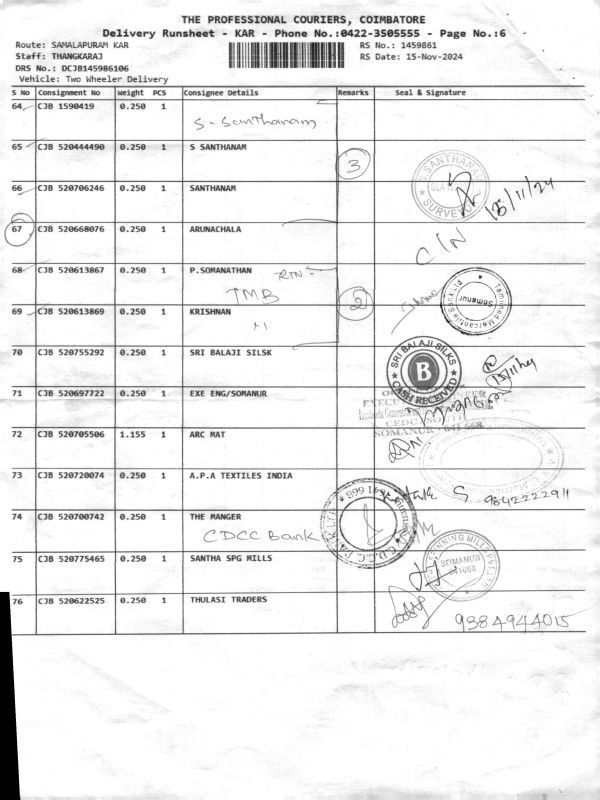 THE PROFESSIONAL COURIERS, COIMBATORE
Delivery Runsheet - KAR - Phone No.:0422-3505555 - Page No.:6
Route: SAMALAPURAM KAR RS No.: 1459861
Staff: THANGKARAJ RS Date: 15-Nov-2024
DRS No.: DCJB145986106
Vehicle: Two Wheeler Delivery
S No Consignment No Weight PCS Consignee Details Remarks Seal & Signature
64 CJB 1590419 0.250 1
S - Santhanam
65 CJB 520444490 0.250 1 S SANTHANAM
3
S SANTHANAM
SURVEYOR
15/11/24
66 CJB 520706246 0.250 1 SANTHANAM
67 CJB 520668076 0.250 1 ARUNACHALA
C/N
68 CJB 520613867 0.250 1 P.SOMANATHAN
TMB
2
Tamilnad Mercantile Bank Ltd
Somanur
69 CJB 520613869 0.250 1 KRISHNAN
70 CJB 520755292 0.250 1 SRI BALAJI SILSK
SRI BALAJI SILKS
B
CASH RECEIVED
71 CJB 520697722 0.250 1 EXE ENG/SOMANUR
SOMANUR - 641 668
72 CJB 520705506 1.155 1 ARC MAT
73 CJB 520720074 0.250 1 A.P.A TEXTILES INDIA
74 CJB 520700742 0.250 1 THE MANGER
CDCC Bank
641 668
75 CJB 520775465 0.250 1 SANTHA SPG MILLS
SOMANUR
641668
76 CJB 520622525 0.250 1 THULASI TRADERS
9384944015